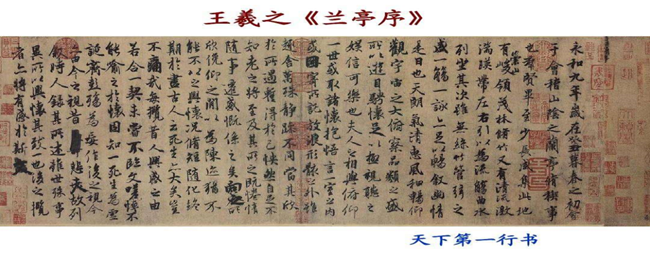 王羲之《兰亭序》
永和九年歲在癸丑暮春之初會
于會稽山陰之蘭亭脩稧事
也群賢畢至少長咸集此地
有崇山峻領茂林脩竹又有清流激
湍暎帶左右引以為流觴曲水
列坐其次雖無絲竹管弦之
盛一觴一詠亦足以暢敘幽情
是日也天朗氣清惠風和暢仰
觀宇宙之大俯察品類之盛
所以遊目騁懷足以極視聽之
娛信可樂也夫人之相與俯仰
一世或取諸懷抱悟言一室之內
或因寄所託放浪形骸之外雖
趣舍萬殊靜躁不同當其欣
於所遇暫得於己怏然自足不
知老之將至及其所之既惓情
隨事遷感慨係之矣向之所
欣俛仰之閒以為陳迹猶不
能不以之興懷況脩短隨化終
期於盡古人云死生亦大矣豈
不痛哉每攬昔人興感之由
若合一契未嘗不臨文嗟悼不
能喻之於懷固知一死生為虛
誕齊彭殤為妄作後之視今
亦由今之視昔悲夫故列
敘時人錄其所述雖世殊事
異所以興懷其致一也後之攬
者亦將有感於斯文
天下第一行书